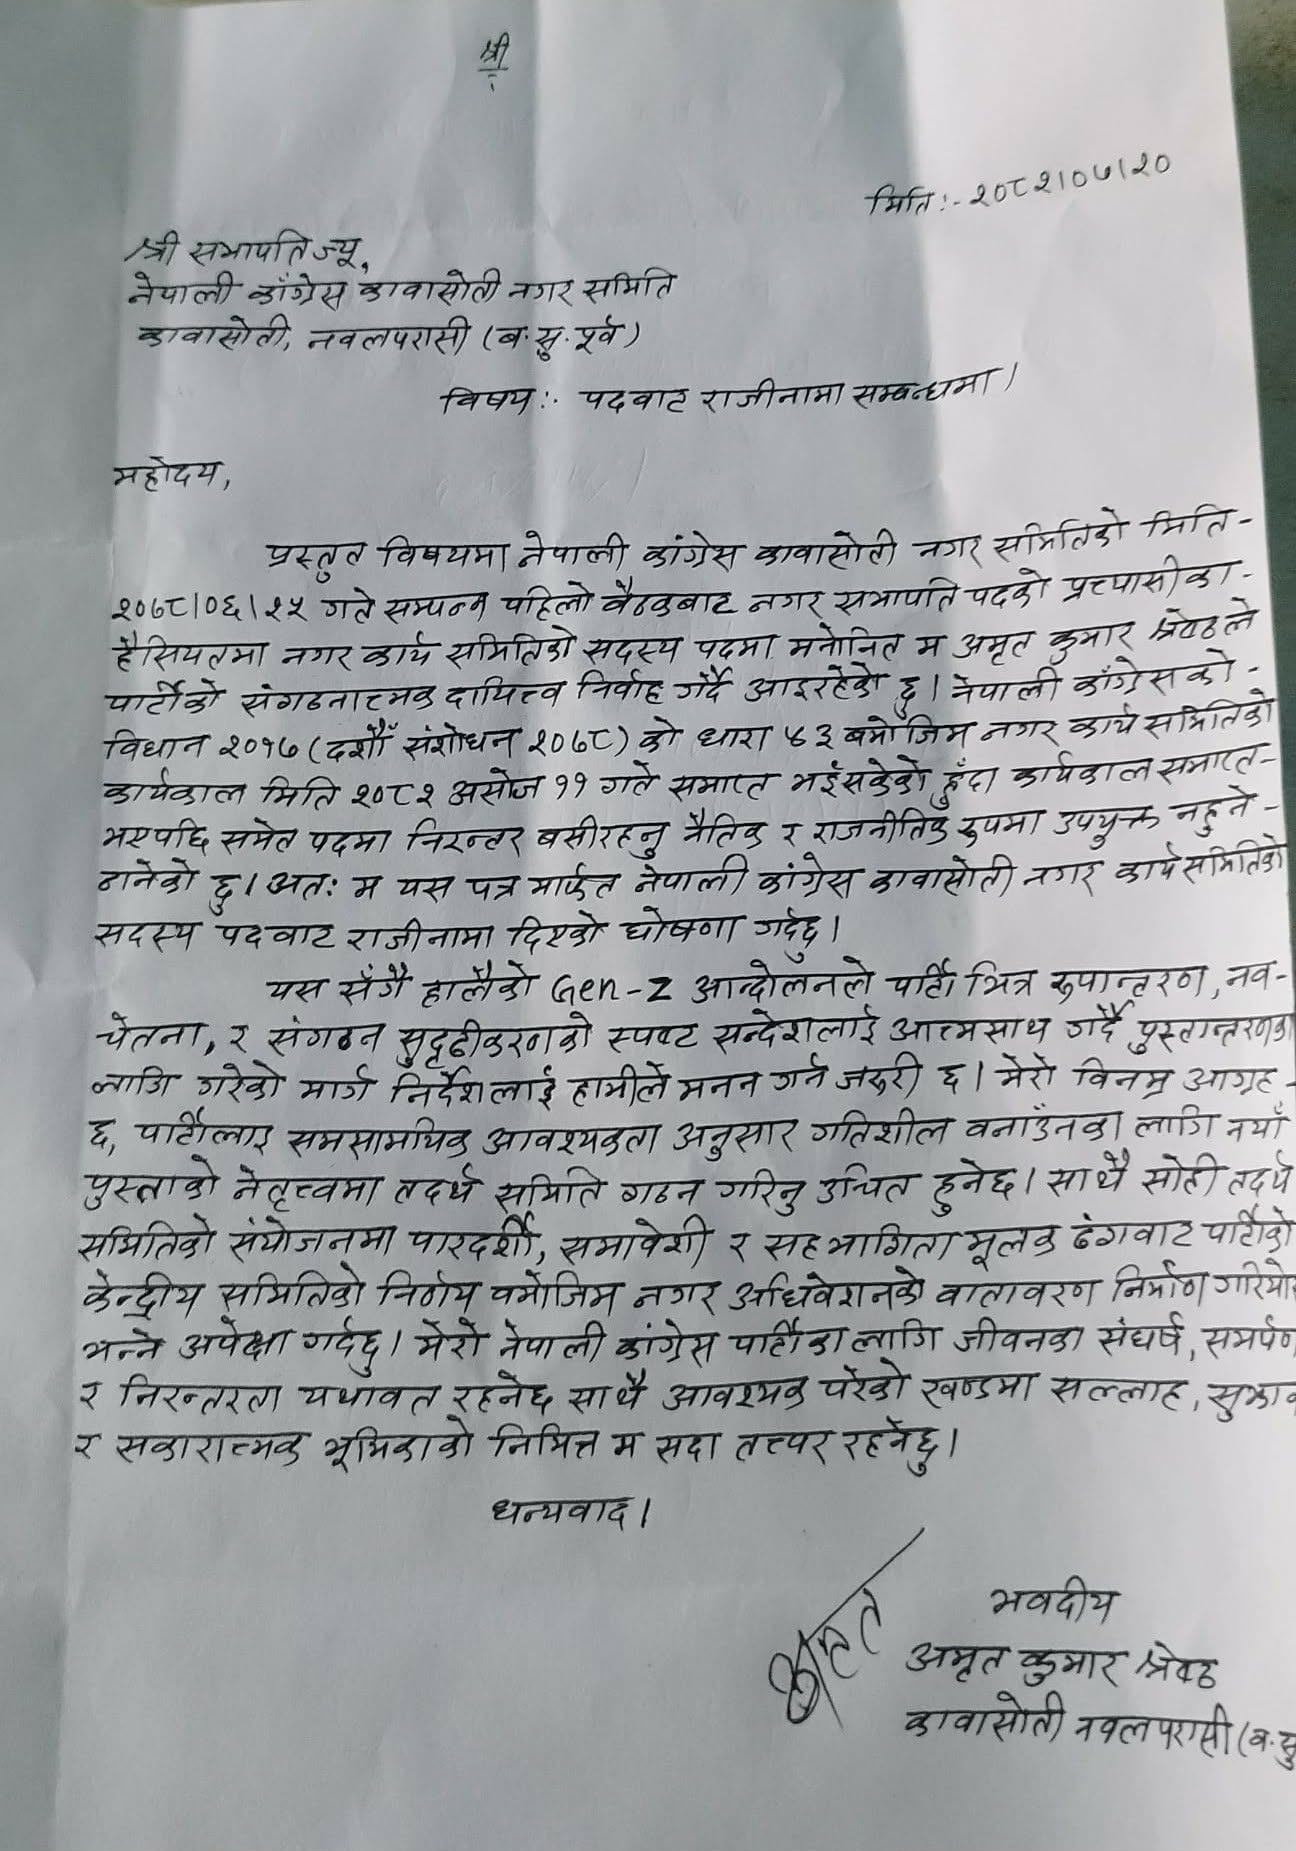 श्री
मिति:- २०८२।०७।२०
श्री सभापतिज्यू,
नेपाली काँग्रेस कावासोती नगर समिति
कावासोती, नवलपरासी (ब.सु.पूर्व)
विषय:- पदवाट राजीनामा सम्वन्धमा।
महोदय,
प्रस्तुत विषयमा नेपाली कांग्रेस कावासोती नगर समितिको मिति-
२०७८।०६।२५ गते सम्पन्न पहिलो वैठकबाट नगर सभापति पदको प्रत्यासीका-
हैसियतमा नगर कार्य समितिको सदस्य पदमा मनोनित म अमृत कुमार श्रेष्ठले
पार्टीको संगठनात्मक दायित्व निर्वाह गर्दै आइरहेको छु। नेपाली काँग्रेसको-
विधान २०१७ (दशौँ संशोधन २०७८) को धारा ४३ बमोजिम नगर कार्य समितिको
कार्यकाल मिति २०८२ असोज ११ गते समाप्त भईसकेको हुँदा कार्यकाल समाप्त-
भएपछि समेत पदमा निरन्तर बसीरहनु नैतिक र राजनीतिक रुपमा उपयुक्त नहुने-
ठानेको छु। अत: म यस पत्र मार्फत नेपाली कांग्रेस कावासोती नगर कार्य समितिको
सदस्य पदवाट राजीनामा दिएको घोषणा गर्दछु।
यस सँगै हालैको Gen-Z आन्दोलनले पार्टी भित्र रुपान्तरण, नव-
चेतना, र संगठन सुदृढीकरणको स्पष्ट सन्देशलाई आत्मसाथ गर्दै पुस्तान्तरणका
लागि गरेको मार्ग निर्देशलाई हामीले मनन गर्न जरुरी छ। मेरो विनम्र आग्रह-
छ, पार्टीलाइ समसामयिक आवश्यकता अनुसार गतिशील वनाउँनका लागि नयाँ
पुस्ताको नेतृत्त्वमा तदर्थ समिति गठन गरिनु उचित हुनेछ। साथै सोही तदर्थ
समितिको संयोजनमा पारदर्शी, समावेशी र सहभागिता मूलक ढंगवाट पार्टीको
केन्द्रीय समितिको निर्णय वमोजिम नगर अधिवेशनको वातावरण निर्माण गरियोस
भन्ने अपेक्षा गर्दछु। मेरो नेपाली कांग्रेस पार्टीका लागि जीवनका संघर्ष, समर्पण
र निरन्तरता यथावत रहनेछ साथै आवश्यक परेको खण्डमा सल्लाह, सुझाव
र सकारात्मक भूमिकाको निमित्त म सदा तत्पर रहनेछु।
धन्यवाद।
भवदीय
अमृत
अमृत कुमार श्रेष्ठ
कावासोती नवलपरासी (ब.सु